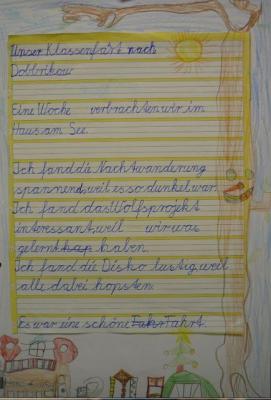 Unser Klassenfart nach
Dobbrikow
Eine Woche verbrachten wir im
Haus am See.
Ich fand die Nachtwanderung
spannend, weil es so dunkel war.
Ich fand das Wolfsprojekt
interessant, weil wir was
gelernt hap haben.
Ich fand die Disko lustig, weil
alle dabei hopsten.
Es war eine schöne Fahr Fahrt.